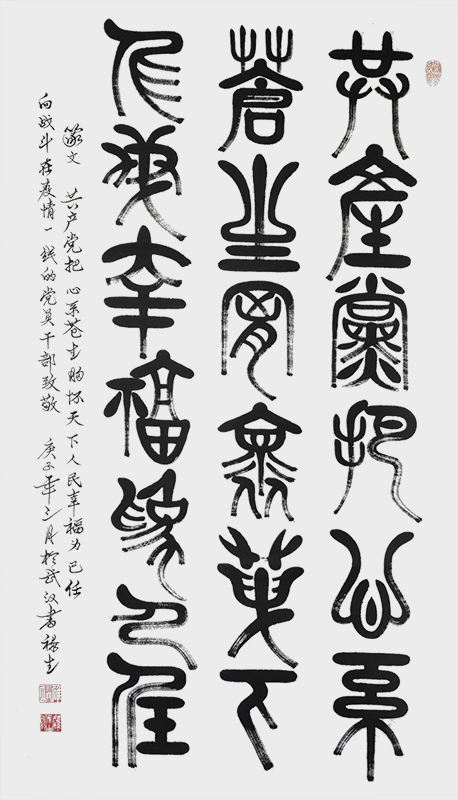 共產黨把心系
蒼生胸懷天下
人民幸福為己任
篆文 共产党把心系苍生胸怀天下人民幸福为己任
向战斗在疫情一线的党员干部致敬 庚子年三月於武汉书禄生